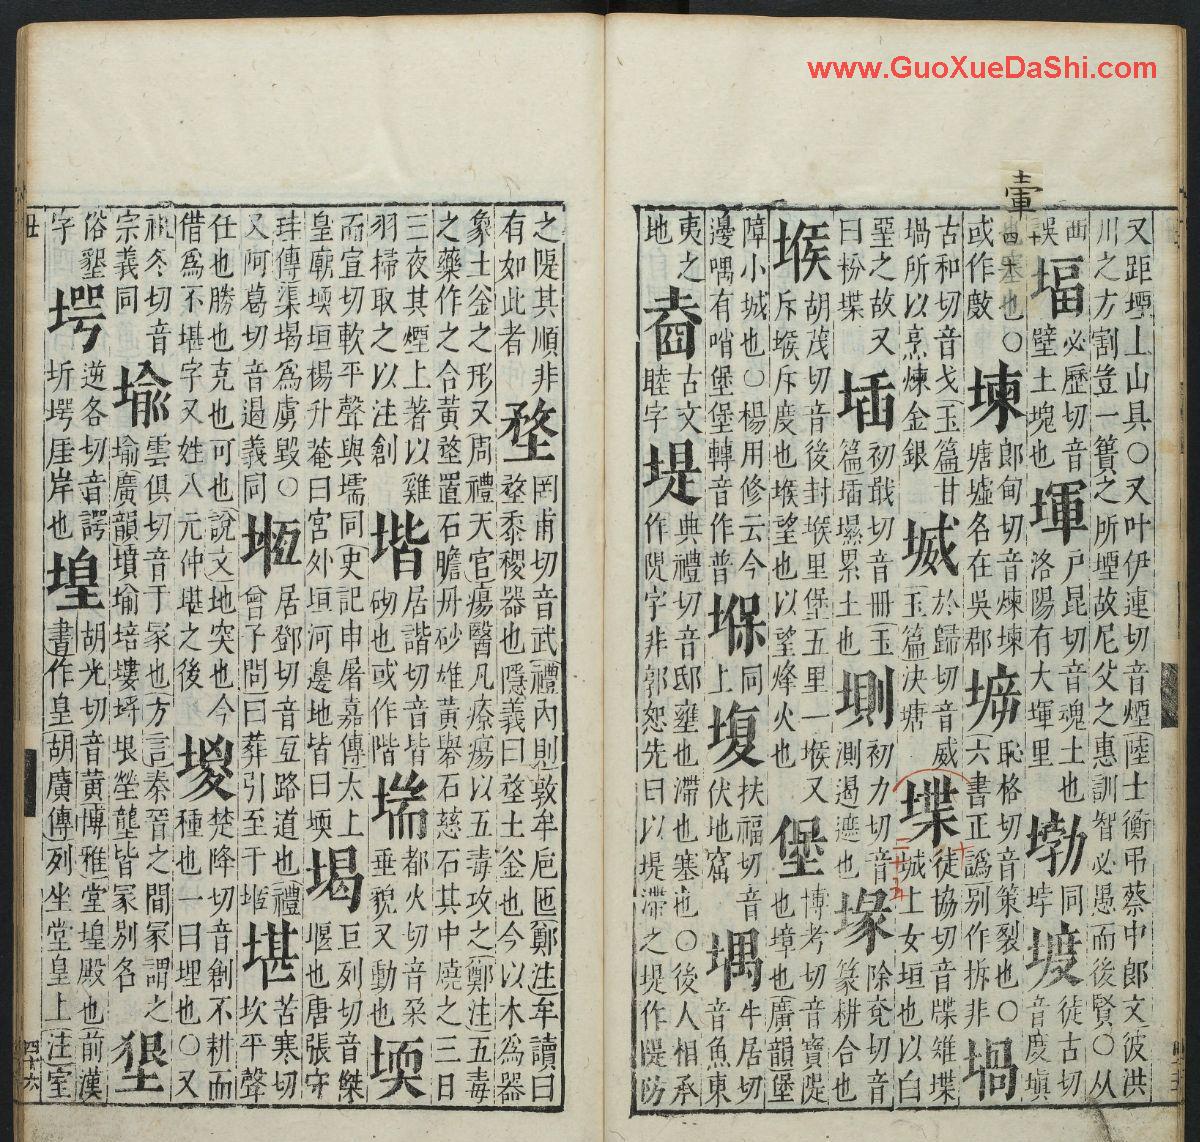 www.GuoXueDaShi.com
又距堙上山具○又叶伊連切音煙陸士衡弔蔡中郎文彼洪
川之方割豈一簣之所堙故尼父之惠訓智必愚而後賢○从
堛必歷切音壁土塊也堚戶昆切音魂土也洛陽有大堚里㙍同埻㙏徒古切音度塡
塞也○或作㪏堜郎甸切音煉堜塘墟名在吳郡㙐恥格切音策裂也○六書正譌別作拆非堝
古和切音戈玉篇甘堝所以烹煉金銀㙎於歸切音威玉篇決塘堞徒協切音牒雉堞城上女垣也以白
堊之故又曰扮堞㙈初戢切音冊玉篇㙈㙷累土也㘺初力切音測遏遮也㙇除兗切音篆耕合也
堠胡茂切音後封堠里堡五里一堠又斥堠斥度也堠望也以望烽火也堡博考切音寶㙄也墇也廣韻堡
障小城也○楊用修云今邊喁有哨堡堡轉音作普堢同上㙅扶福切音伏地窟堣牛居切音魚東
夷之地𡍩古文睦字堤典禮切音邸壅也滯也塞也○後人相承作隄字非郭恕先曰以堤滯之堤作隄防
之隄其順非有如此者堥罔甫切音武禮內則敦牟卮匜鄭注牟讀曰堥黍稷器也隱義曰堥土釜也今以木爲器
象土釜之形又周禮天官瘍醫凡療瘍以五毒攻之鄭注五毒
之藥作之合黃堥置石膽丹砂雄黃礜石慈石其中燒之三日
三夜其煙上著以雞羽掃取之以注創堦居諧切音皆砌也或作階㙐都火切音朶垂貌又動也堧
而宣切軟平聲與壖同史記申屠嘉傳太上皇廟堧垣楊升菴曰宮外垣河邊地皆曰堧堨巨列切音傑堰也唐張守
珪傳渠堨爲虜毀○又阿葛切音遏義同堩居鄧切音亙路道也禮曾子問曰葬引至于堩堪苦寒切坎平聲
任也勝也克也可也說文地突也今借爲不堪字又姓八元仲堪之後堫楚降切音創不耕而種也一曰埋也○又
祖冬切音宗義同堬雲俱切音于冢也方言秦晉之間冢謂之堬廣韻墳堬培塿埒埌塋壟皆冢別名墾
俗墾字堮逆各切音諤圻堮厓岸也堭胡光切音黃博雅堂堭殿也前漢書作皇胡廣傳列坐堂皇上注室
四十六